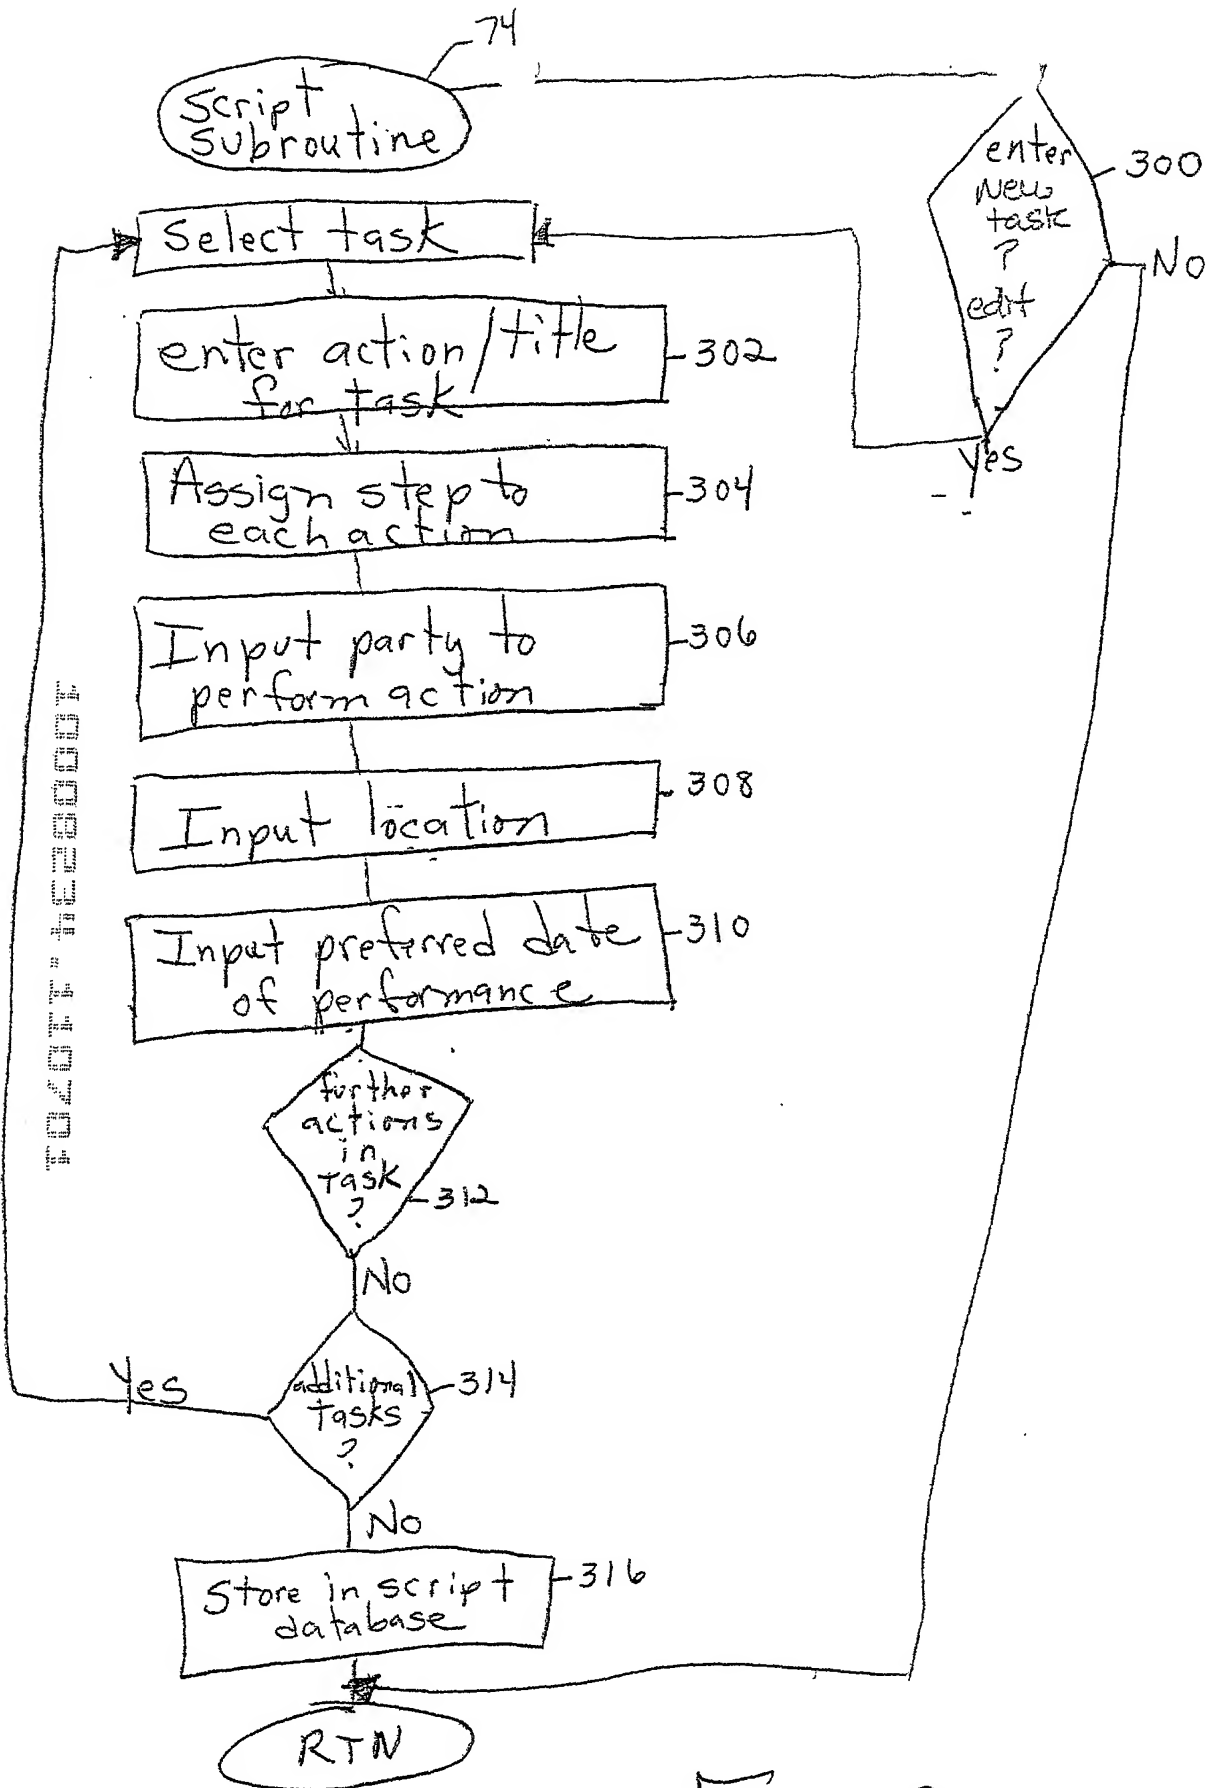 74
Script
subroutine
enter
New
task
?
edit
?
300
No
Yes
Select task
enter action/title
for task
302
Assign step to
each action
304
Input party to
perform action
306
Input location
308
Input preferred date
of performance
310
further
actions
in
task
?
312
No
additional
tasks
?
314
Yes
No
Store in script
database
316
RTN
10008234.110701